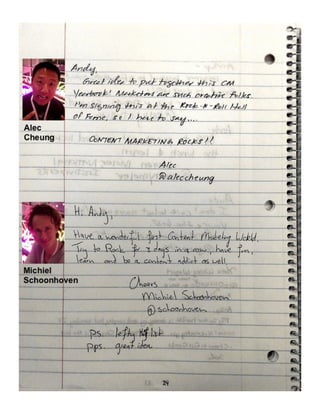 Andy,
Great idea to put together this CM
Yearbook! Marketers are such creative folks.
I'm signing this at the Rock-n-Roll Hall
of Fame, so I have to say....
CONTENT MARKETING ROCKS!!
Alec
@aleccheung
Alec
Cheung
Hi Andy,
Have a wonderful first Content Marketing World.
Try to Rock for 2 days in a row, have fun,
learn and be a content addict as well.
Cheers
Michiel Schoonhoven
@schoonhoven
Michiel
Schoonhoven
ps. lefty
pps. great idea
24